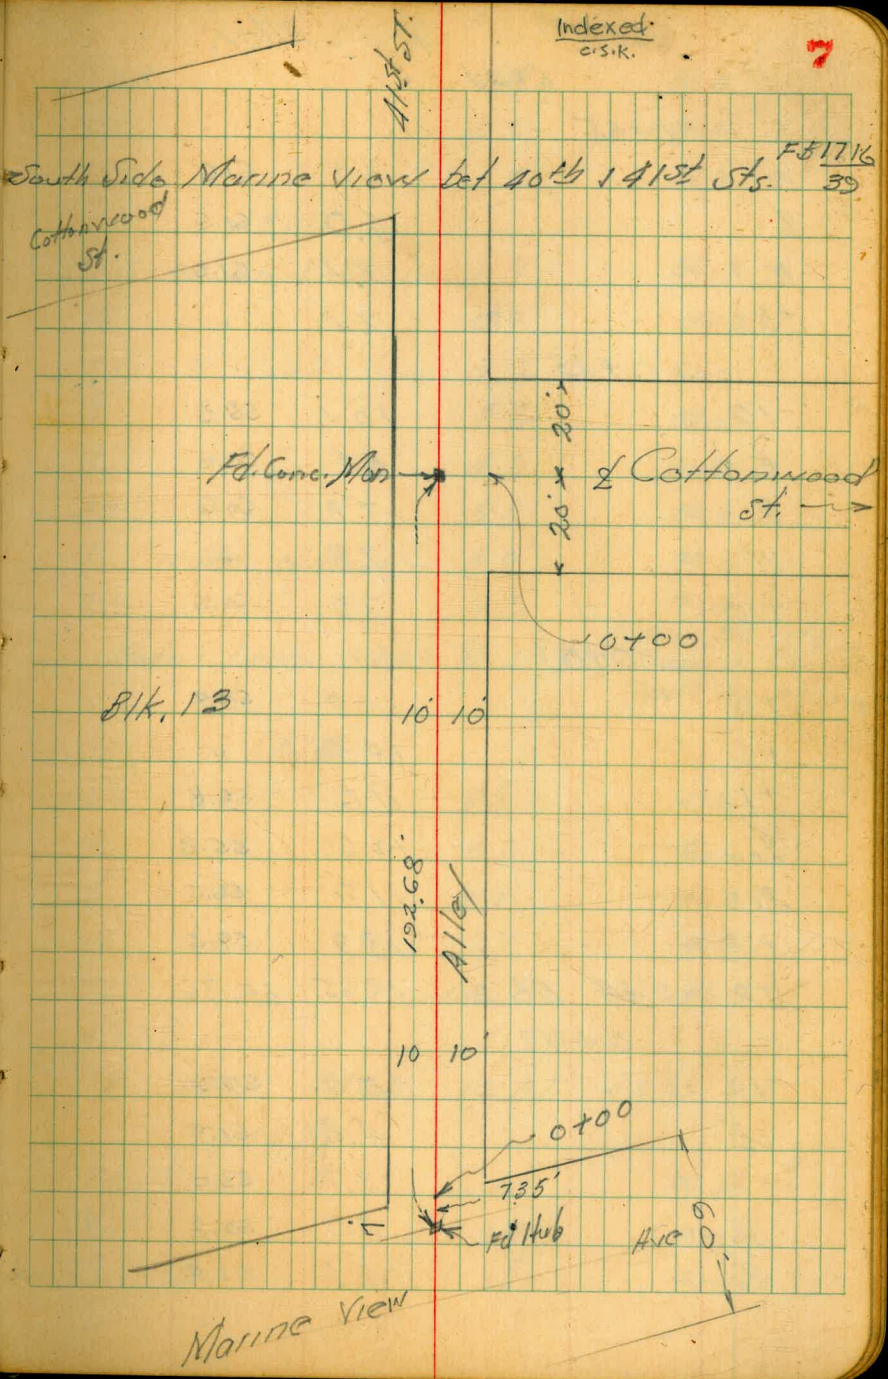 Indexed
C.S.K.
7
41st St.
South Side Marine View bet 40th & 41st Sts.
FB 1716
39
Cottonwood
St.
20'
Fd. Conc. Mon
℄ Cottonwood
St.
20'
0+00
Blk. 13
10' 10'
192.68'
Alley
10 10'
0+00
7.35'
Fd Hub
Ave
60'
Marine View